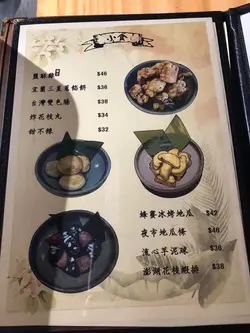 小食
鹽酥雞 $46
宜蘭三星蔥餡餅 $36
台灣雙色腸 $38
炸花枝丸 $34
甜不辣 $32
蜂蜜冰烤地瓜 $42
夜市地瓜條 $36
流心芋泥球 $36
澎湖花枝蝦排 $38